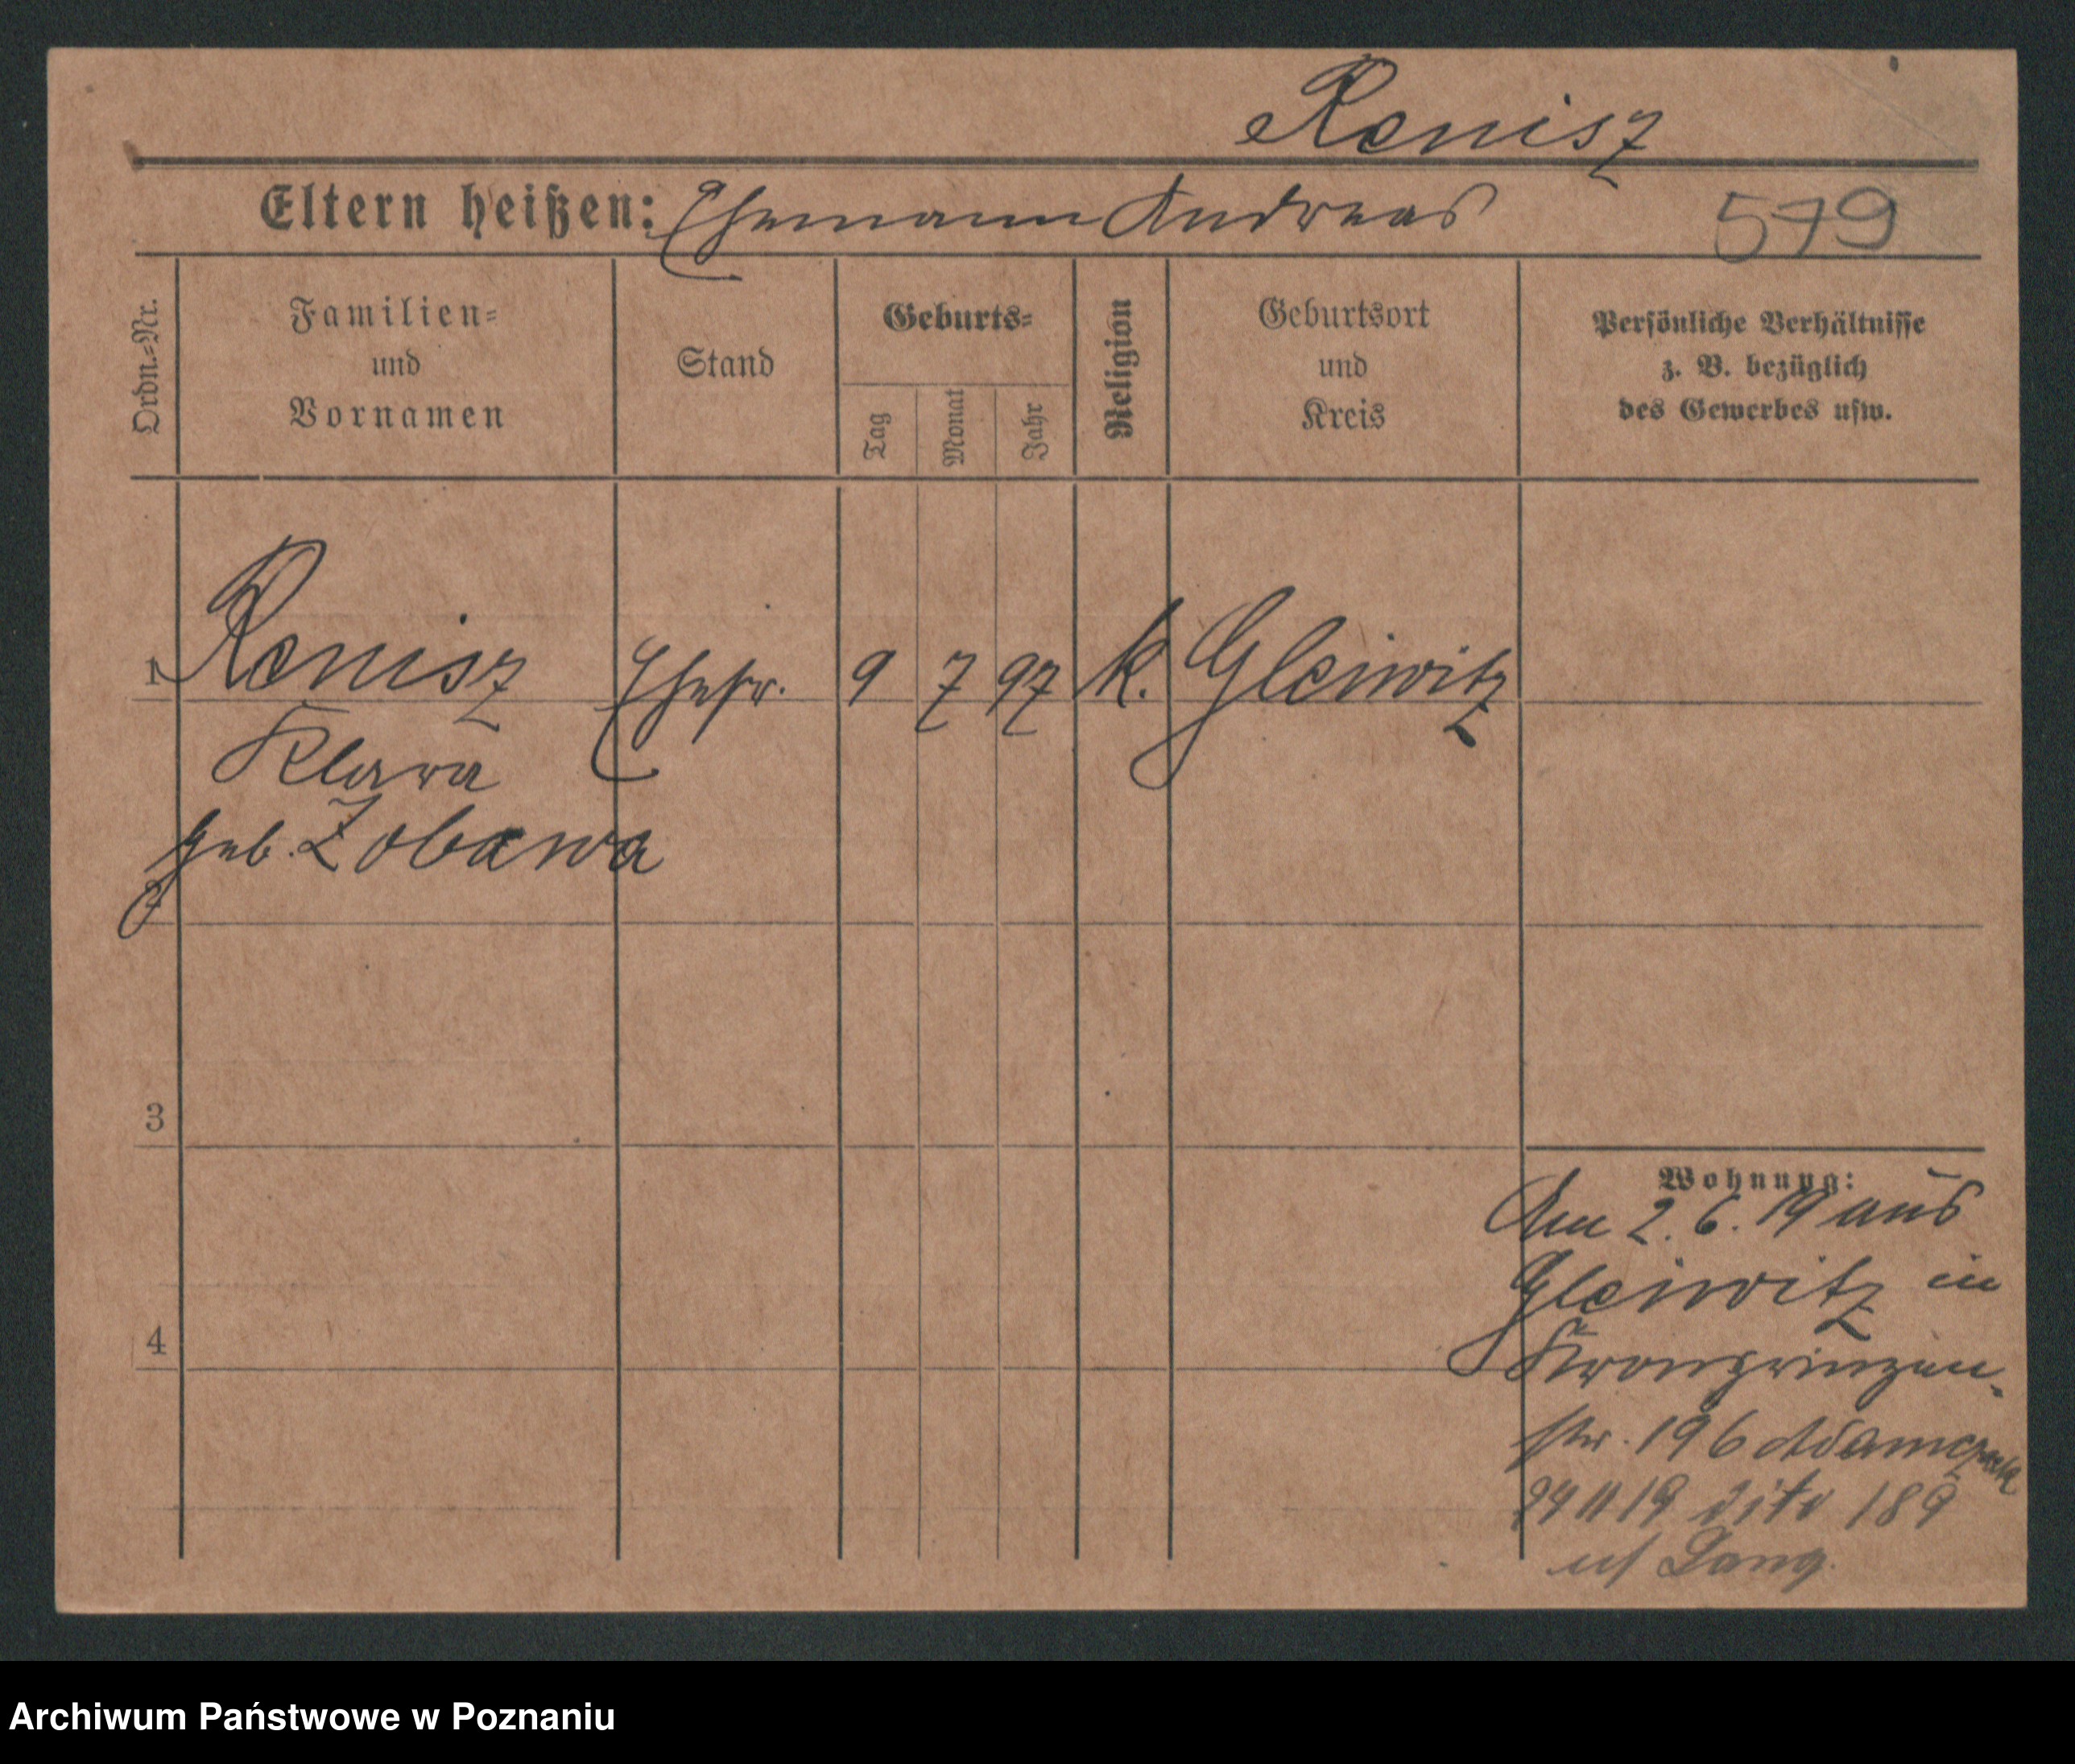 Renisz
Eltern heißen: Ehemann Andreas
579
Ordn.-Nr.
Familien-
und
Vornamen
Stand
Geburts-
Tag
Monat
Jahr
Religion
Geburtsort
und
Kreis
Persönliche Verhältnisse
z. B. bezüglich
des Gewerbes usw.
1 Renisz Ehefr. 9 7 97 k. Gleiwitz
Klara
geb. Zobawa
2
3
4
Wohnung:
Am 2. 6. 19 aus
Gleiwitz in
Kronprinzen-
str. 196 Adamczak
29 11 19 dito 189
b/ Lang.
Archiwum Państwowe w Poznaniu